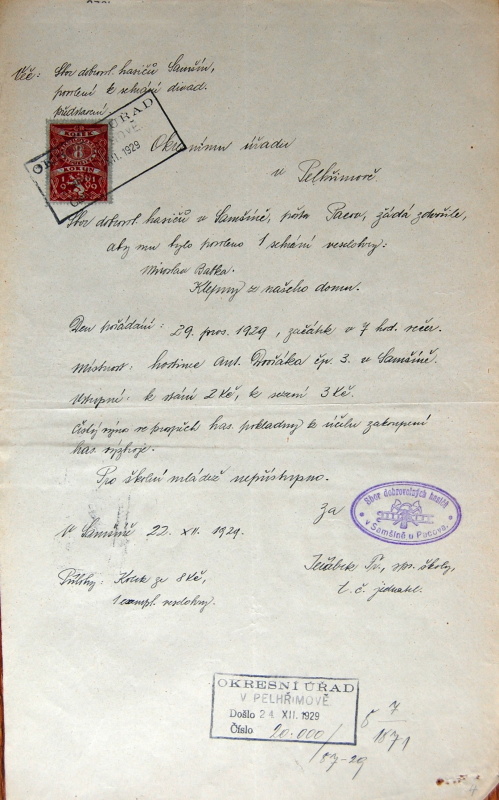 Věc: Sbor dobrovol. hasičů Samšín,
povolení k sehrání divad.
představení.
OKRESNÍ ÚŘAD
XII. 1929
KOLEK
8
KORUN
Okresnímu úřadu
v Pelhřimově.
Sbor dobrovol. hasičů v Samšíně, pošta Pacov, žádá zdvořile,
aby mu bylo povoleno 1 sehrání veselohry:
Miroslav Batka.
Klepny z našeho domu.
Den pořádání: 29. pros. 1929, začátek v 7 hod. večer.
Místnost: hostinec Ant. Dvořáka čp. 3. v Samšíně.
Vstupné: k stání 2 Kč, k sezení 3 Kč.
Čistý výnos ve prospěch has. pokladny k účelu zakoupení
has. výzbroje.
Pro školní mládež nepřístupno.
Za
Sbor dobrovolných hasičů
v Samšíně u Pacova.
V Samšíně 22. XII. 1929.
Přílohy: Kolek za 8 Kč,
1 exempl. veselohry.
Jeřábek Fr., spr. školy,
t. č. jednatel.
OKRESNÍ ÚŘAD
V PELHŘIMOVĚ
Došlo 24 XII. 1929
Číslo 20.000/